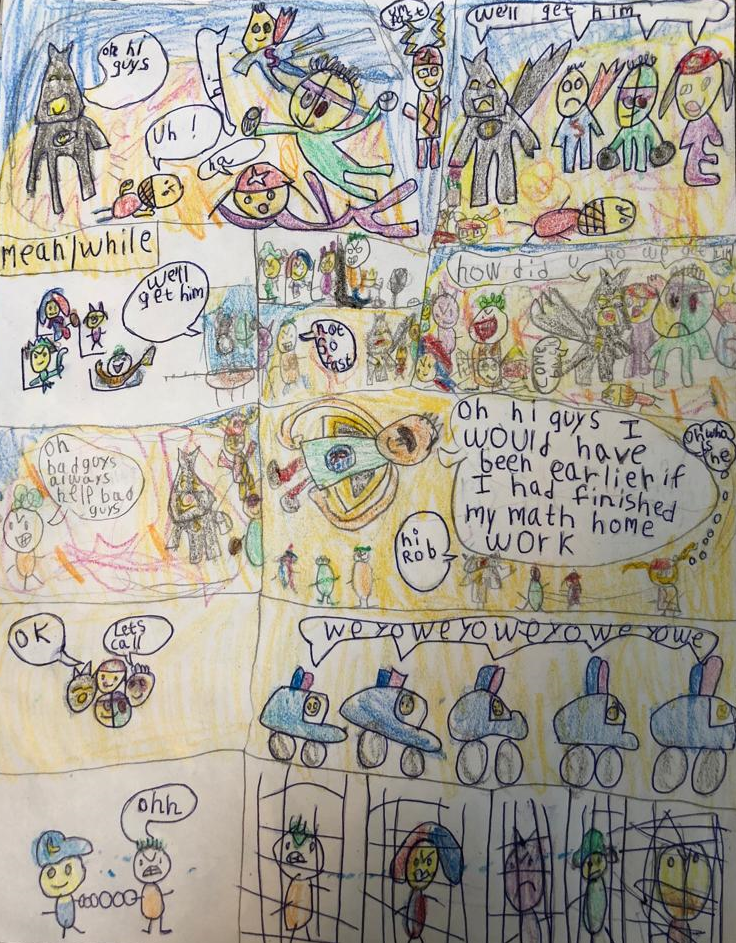 oh hi
guys
Uh!
ha
I'm
fast
we'll get him
mean/while
we'll
get him
not
so
fast
how did u
oh
bad guys
always
help bad
guys
Oh hi guys I
would have
been earlier if
I had finished
my math home
work
oh who
is
he
hi
Rob
OK
Lets
call
weyoweyoweyoweyowe
ohh